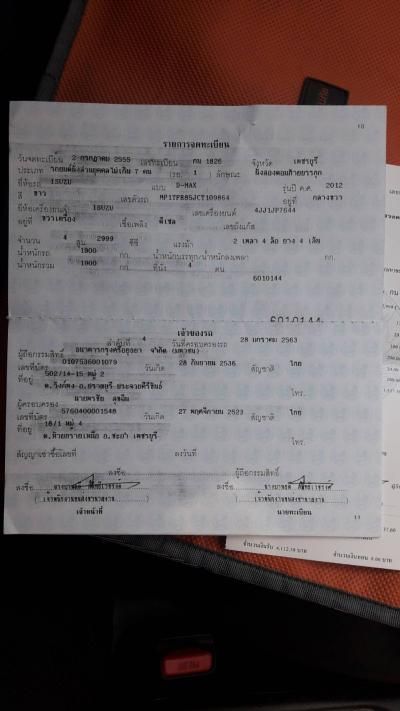 18
รายการจดทะเบียน
วันจดทะเบียน 2 กรกฎาคม 2555 เลขทะเบียน กน 1826 จังหวัด เพชรบุรี
ประเภท รถยนต์นั่งส่วนบุคคลไม่เกิน 7 คน (รย. 1 ) ลักษณะ นั่งสองตอนท้ายบรรทุก
ยี่ห้อรถ ISUZU แบบ D-MAX รุ่นปี ค.ศ. 2012
สี ขาว เลขตัวรถ MP1TFR85JCT109864 อยู่ที่ กลางขวา
ยี่ห้อเครื่องยนต์ ISUZU เลขเครื่องยนต์ 4JJ1JP7644
อยู่ที่ ขวาเครื่อง เชื้อเพลิง ดีเซล เลขถังแก๊ส
จำนวน 4 สูบ 2999 ซีซี แรงม้า 2 เพลา 4 ล้อ ยาง 4 เส้น
น้ำหนักรถ 1900 กก. น้ำหนักบรรทุก/น้ำหนักลงเพลา กก.
น้ำหนักรวม 1900 กก. ที่นั่ง 4 คน
6010144
6010144
เจ้าของรถ
ลำดับที่ 4 วันที่ครอบครองรถ 28 มกราคม 2563
ผู้ถือกรรมสิทธิ์ ธนาคารกรุงศรีอยุธยา จำกัด (มหาชน)
เลขที่บัตร 0107536001079 วันเกิด 28 กันยายน 2536 สัญชาติ ไทย
ที่อยู่ 502/14-15 หมู่ 2
ต.วังก์พง อ.ปราณบุรี ประจวบคีรีขันธ์ โทร.
ผู้ครอบครอง นายพรชัย
เลขที่บัตร 5760400001548 วันเกิด 27 พฤศจิกายน 2523 สัญชาติ ไทย
ที่อยู่ 18/1 หมู่ 4
ต.ห้วยทรายเหนือ อ.ชะอำ เพชรบุรี โทร.
สัญญาเช่าซื้อเลขที่ ลงวันที่
ลงชื่อ ผู้ถือกรรมสิทธิ์
ลงชื่อ ลงชื่อ
เจ้าพนักงานขนส่งชำนาญงาน เจ้าพนักงานขนส่งชำนาญงาน
เจ้าหน้าที่ นายทะเบียน
จำนวนเงินรับ 6,112.38 บาท จำนวนเงินทอน 0.00 บาท